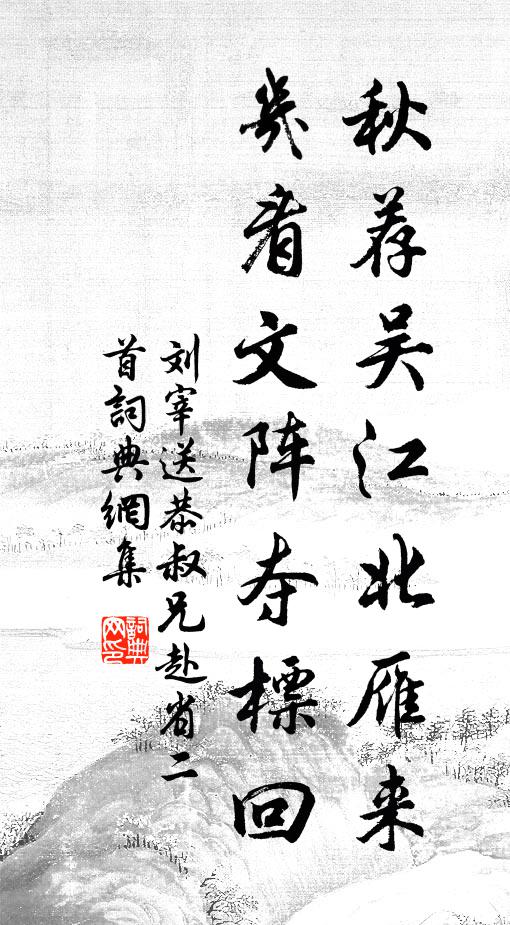 秋荐吴江北雁来
几看文阵夺标回
刘宰送恭叔兄赴省二
首词典網集
詞典网印